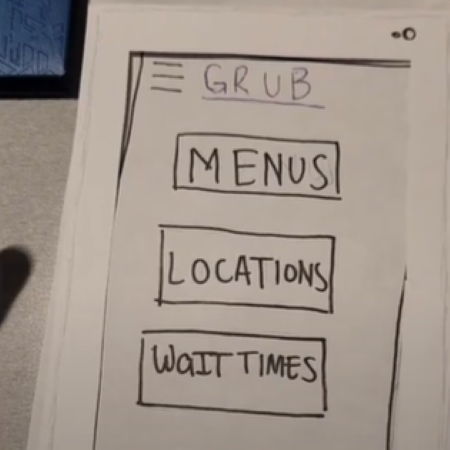 GRUB
MENUS
LOCATIONS
WaIT TIMES